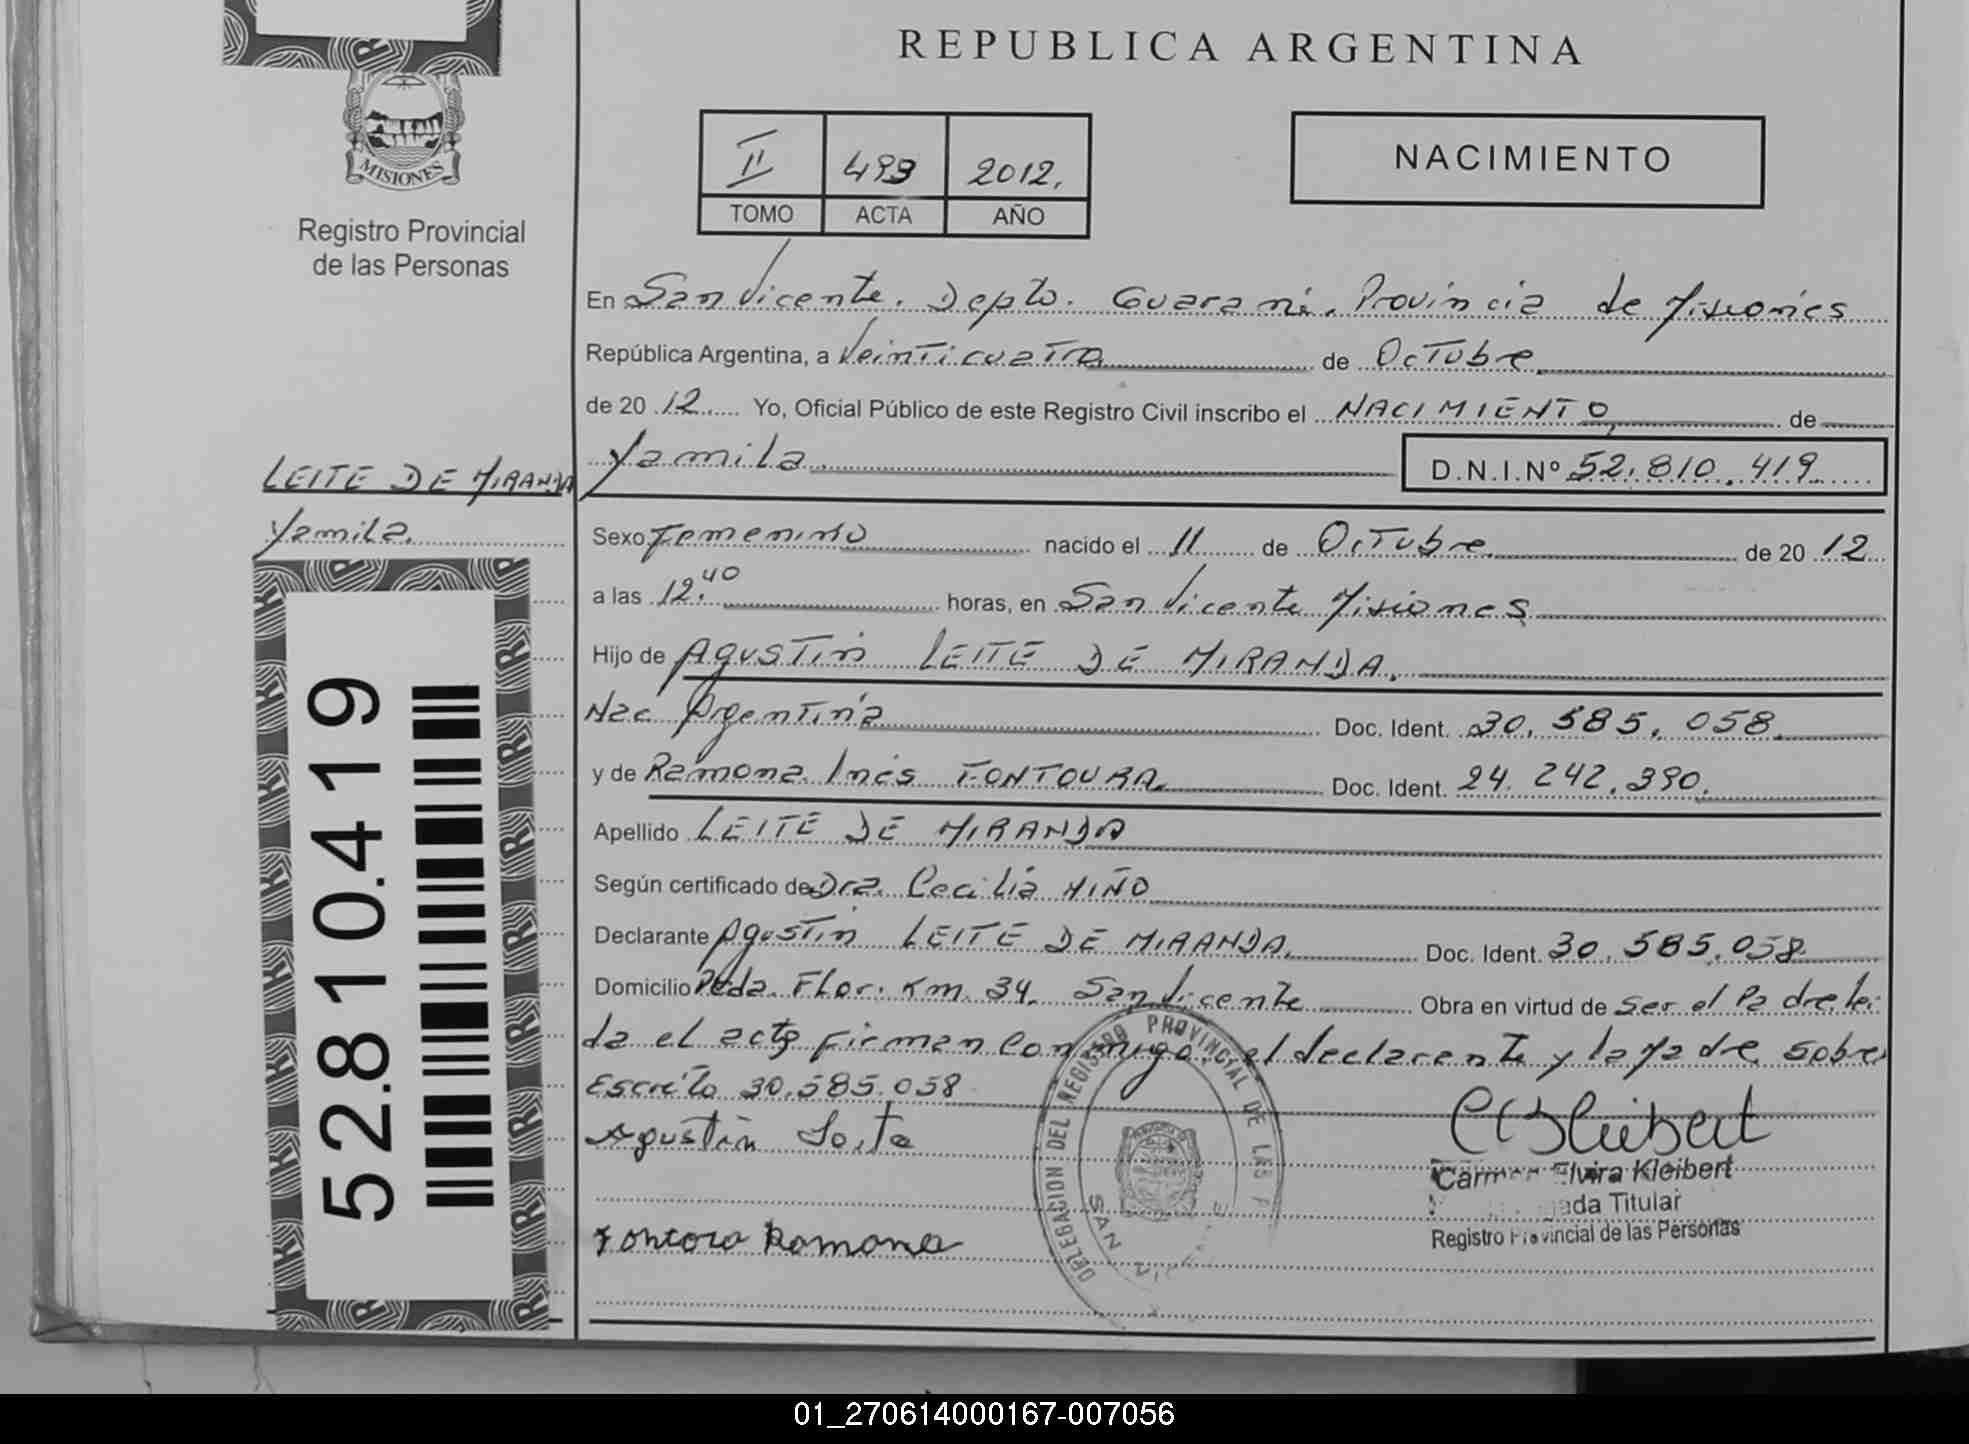 REPUBLICA ARGENTINA
MISIONES
Registro Provincial
de las Personas
II 493 2012.
TOMO ACTA AÑO
NACIMIENTO
En San Vicente. Depto. Guarani. Provincia de Misiones
República Argentina, a Veinticuatro de Octubre
de 20 12 Yo, Oficial Público de este Registro Civil inscribo el NACIMIENTO de
Yamila D.N.I.Nº 52.810.419
LEITE DE MIRANDA
Yamila.
Sexo Femenino nacido el 11 de Octubre de 20 12
a las 12.40 horas, en San Vicente Misiones
Hijo de Agustin LEITE DE MIRANDA.
Nac Argentina Doc. Ident. 30.585.058.
y de Ramona Inés FONTOURA Doc. Ident. 24.242.390.
Apellido LEITE DE MIRANDA
Según certificado de Dra. Cecilia MIÑO
Declarante Agustin LEITE DE MIRANDA. Doc. Ident. 30.585.058
Domicilio Pcda. Flor. Km. 34. San Vicente Obra en virtud de ser el Padre lei
da el acta firman conmigo el declarante y la Madre sobre
Escrito 30.585.058
Agustin
Fontora Ramona
DELEGACION DEL REGISTRO PROVINCIAL DE LAS P
SAN VIC
Carmen Elvira Kleibert
ada Titular
Registro Provincial de las Personas
52.810.419
01_270614000167-007056